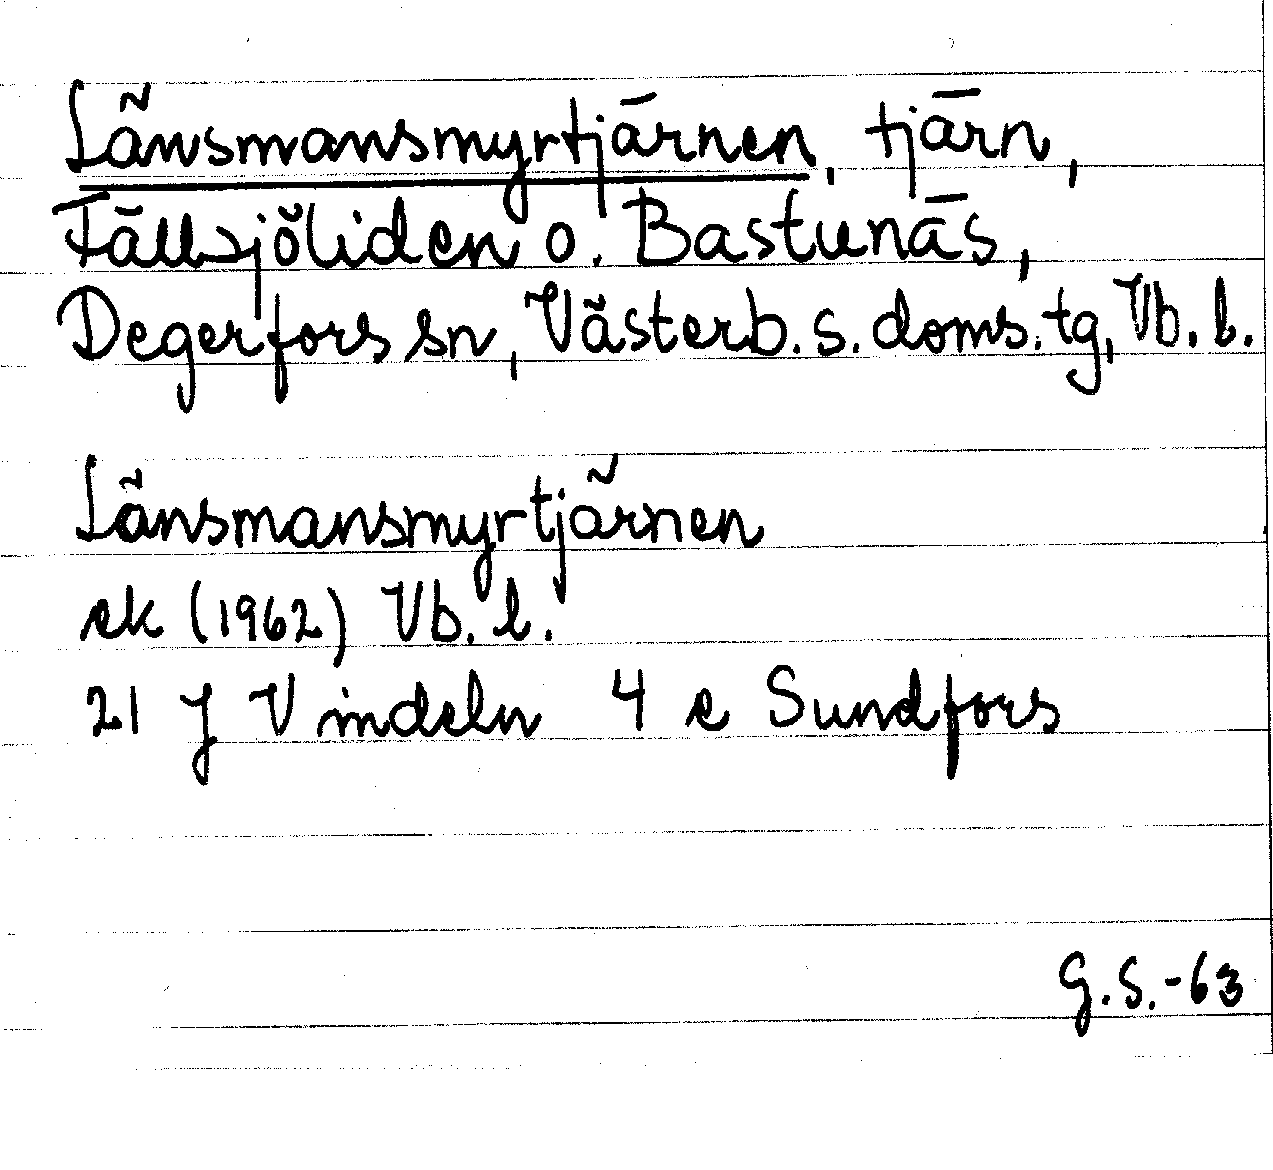 Länsmansmyrtjärnen, tjärn,
Fällsjöliden o. Bastunäs,
Degerfors sn, Västerb. s. doms. tg, Vb. l.
Länsmansmyrtjärnen
ek (1962) Vb. l.
21 J Vindeln 4 e Sundfors
G.S.-63